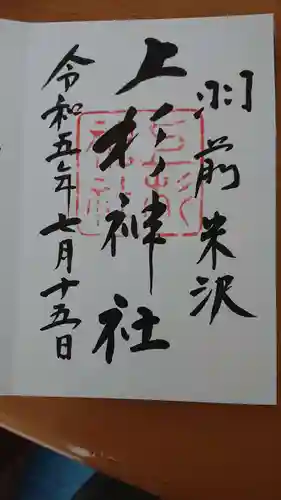 羽前米沢
上杉神社
令和五年七月十五日
上杉神社